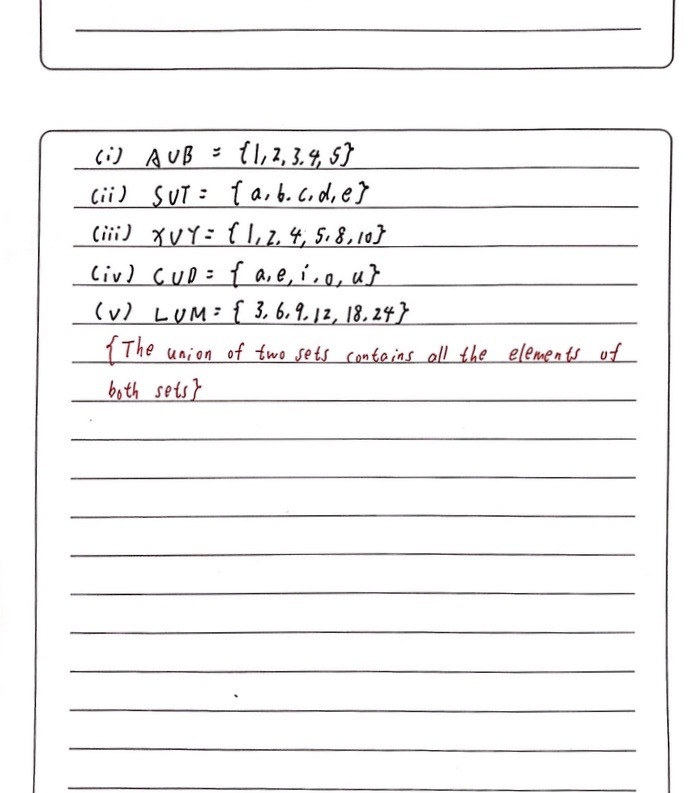 (i) A∪B = {1,2,3,4,5}
(ii) S∪T = {a,b,c,d,e}
(iii) X∪Y = {1,2,4,5,8,10}
(iv) C∪D = {a,e,i,o,u}
(v) L∪M = {3,6,9,12,18,24}
{The union of two sets contains all the elements of
both sets}